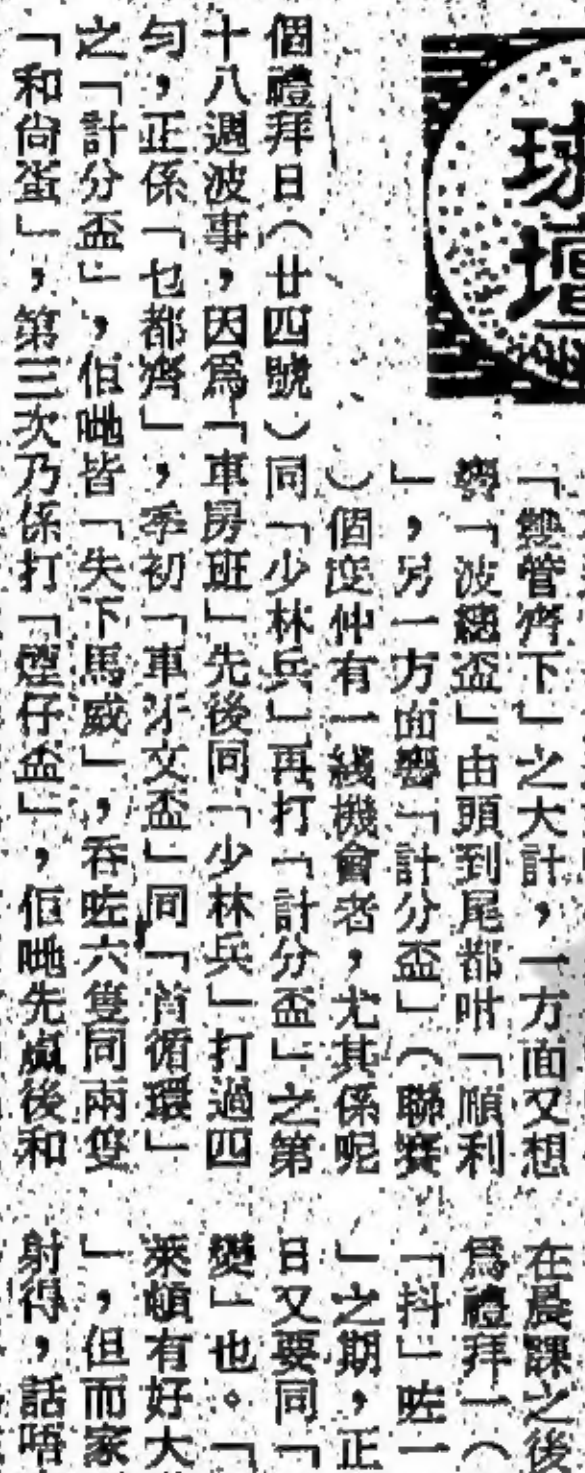 球壇
「雙管齊下」之大計,一方面又想
響「波總盃」由頭到尾都咁「順利
」,另一方面響「計分盃」(聯賽
)個度仲有一綫機會者,尤其係呢
個禮拜日(廿四號)同「少林兵」再打「計分盃」之第
十八週波事,因爲「車房班」先後同「少林兵」打過四
勻,正係「乜都齊」,季初「車牙文盃」同「首循環」
之「計分盃」,佢哋皆「失下馬威」,吞咗六隻同兩隻
「和尚蛋」,第三次乃係打「煙仔盃」,佢哋先贏後和
在晨課之後
爲禮拜一(
「抖」咗一
」之期,正
日又要同「
變」也。「
來頓有好大
」,但而家
射得,話唔